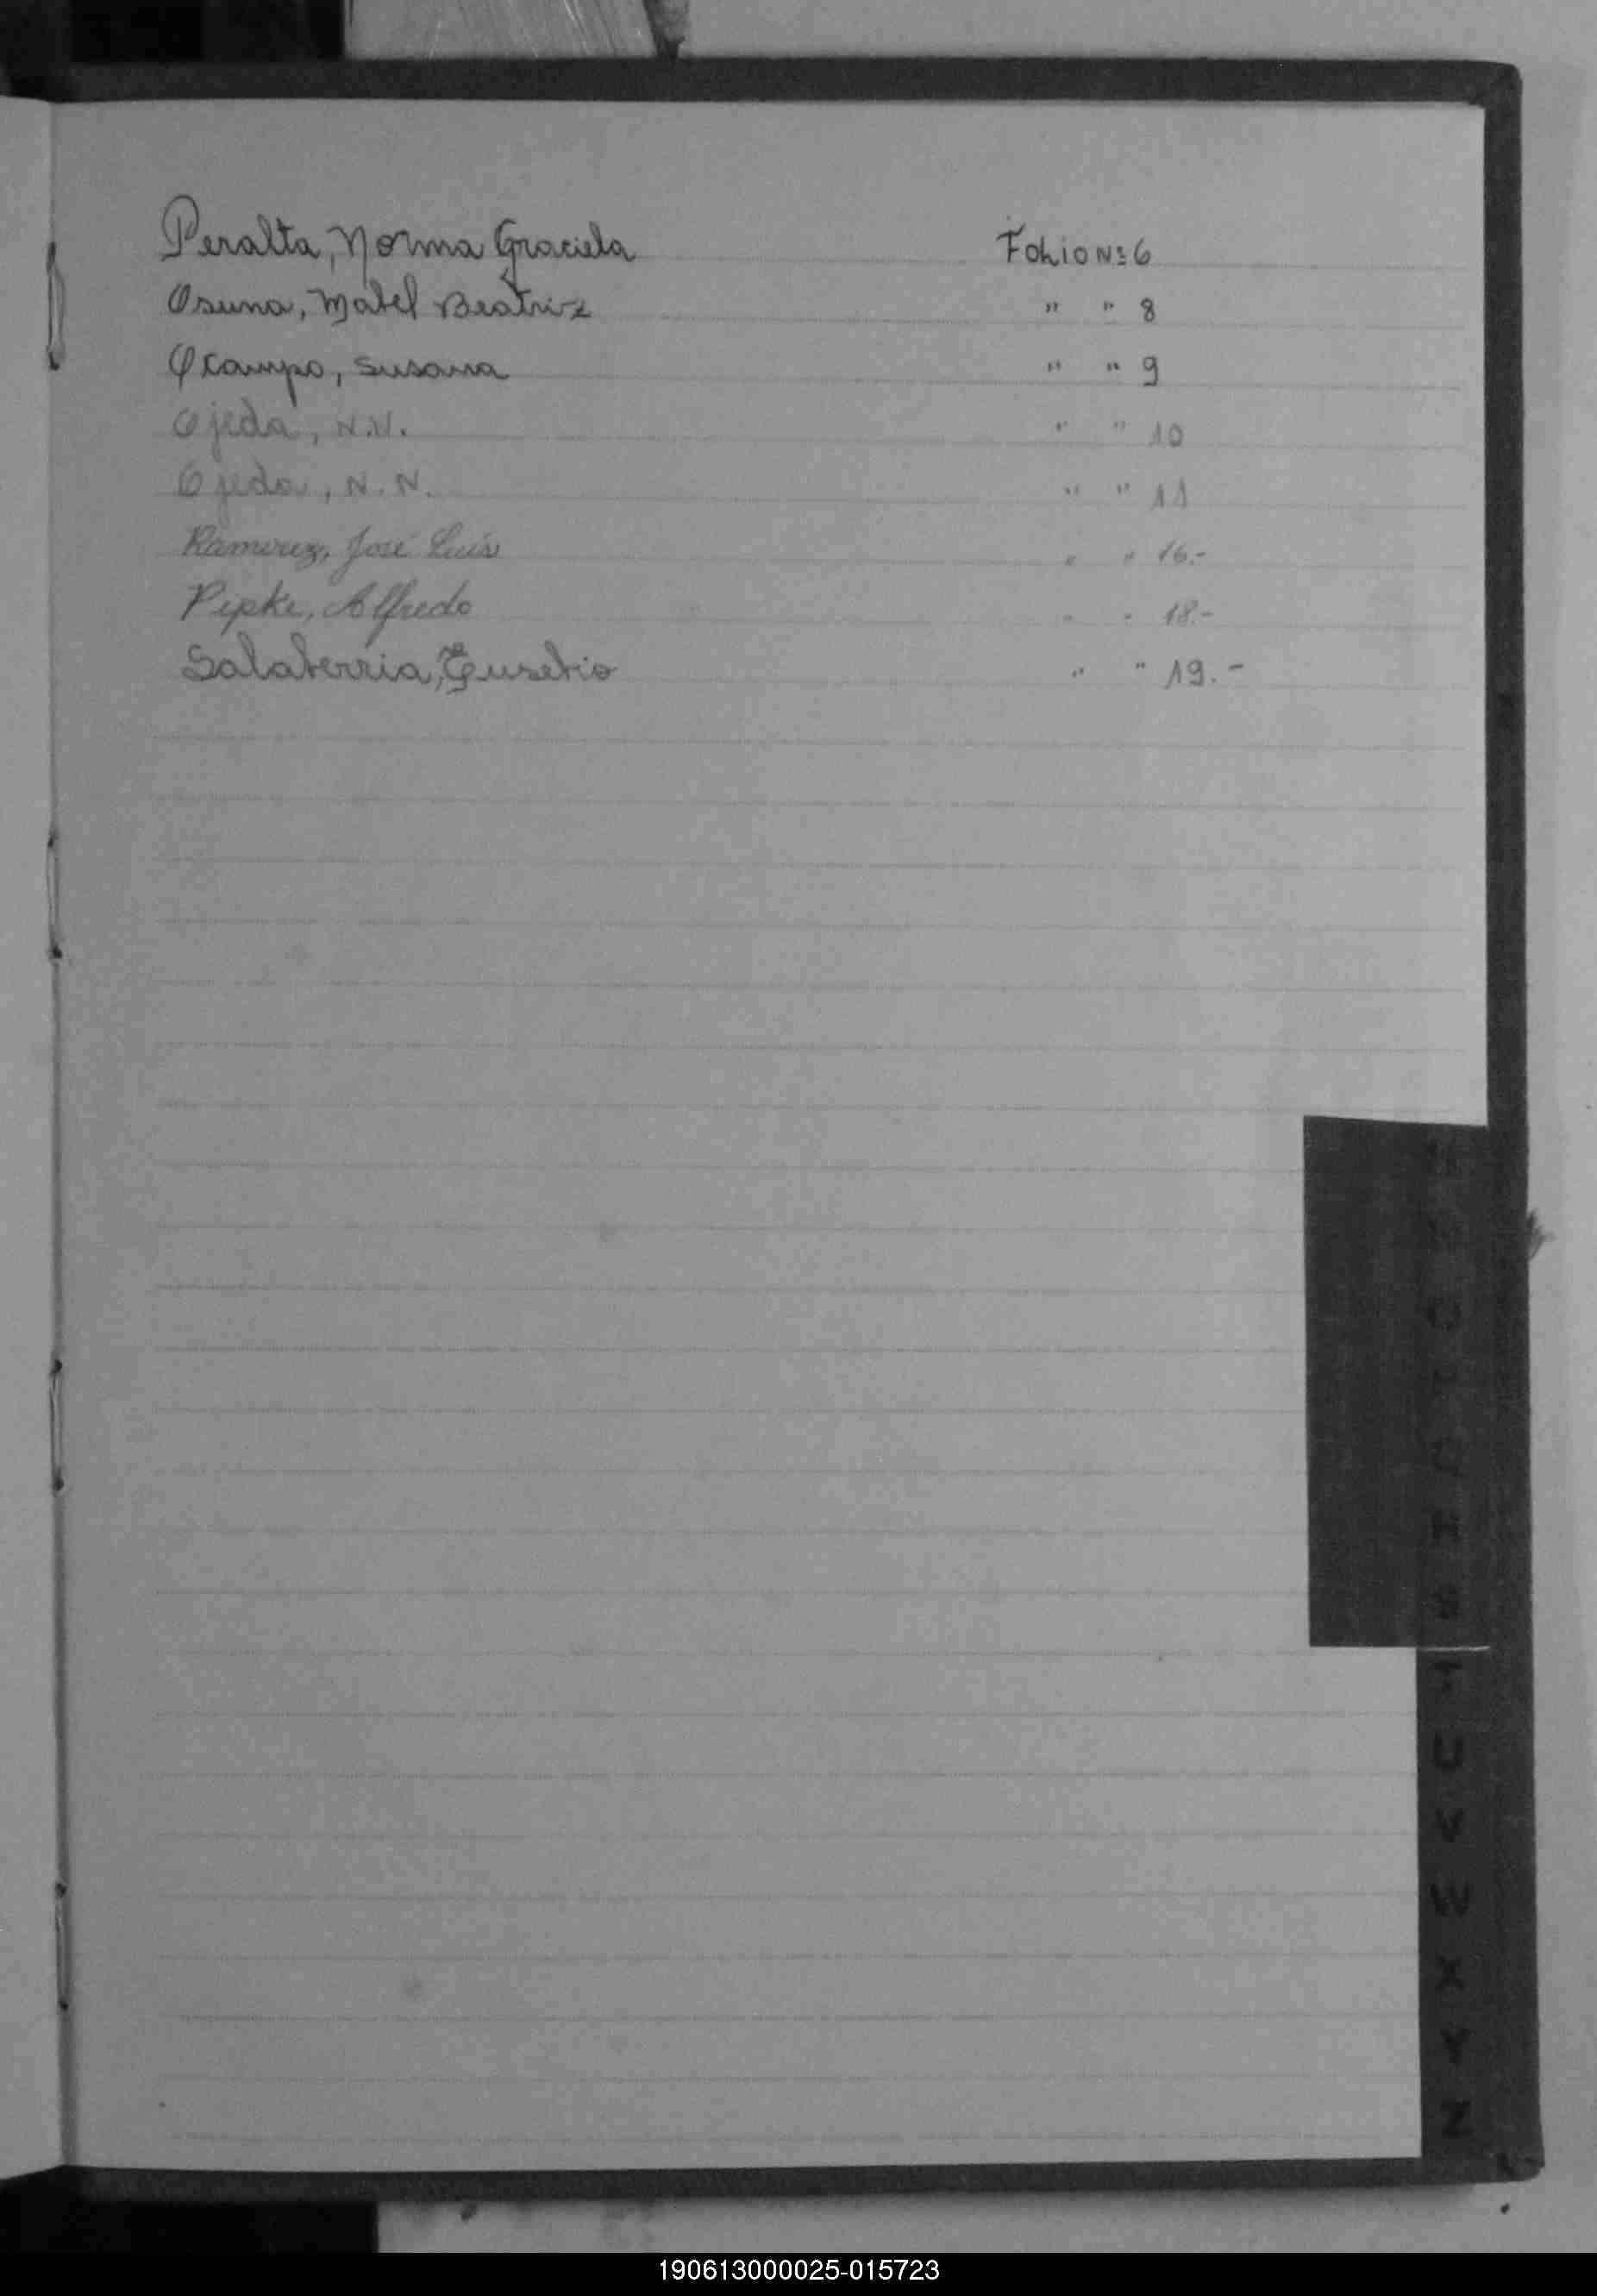 Peralta, Norma Graciela Folio Nº 6
Osuna, Mabel Beatriz " " 8
Ocampo, Susana " " 9
Ojeda, N.N. " " 10
Ojeda, N.N. " " 11
Ramirez, José Luis " " 16.-
Pipke, Alfredo " " 18.-
Salaberria, Eusebio " " 19.-
O
P
Q
R
S
T
U
V
W
X
Y
Z
190613000025-015723